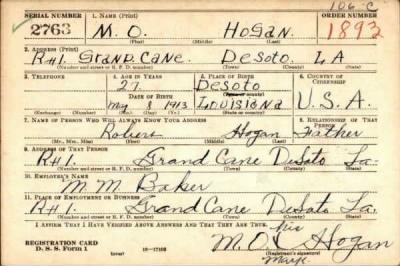 106-C
SERIAL NUMBER 1. NAME (Print) ORDER NUMBER
2763 M. O. HOGAN 1893
(First) (Middle) (Last)
2. ADDRESS (Print)
R#1. GRAND CANE DeSoto. LA
(Number and street or R. F. D. number) (Town) (County) (State)
3. TELEPHONE 4. AGE IN YEARS 5. PLACE OF BIRTH 6. COUNTRY OF CITIZENSHIP
27 DeSoto
DATE OF BIRTH (Town or county)
May 8 1913 Louisiana U.S.A.
(Exchange) (Number) (Mo.) (Day) (Yr.) (State or country)
7. NAME OF PERSON WHO WILL ALWAYS KNOW YOUR ADDRESS 8. RELATIONSHIP OF THAT PERSON
Robert Hogan Father
(Mr., Mrs., Miss) (First) (Middle) (Last)
9. ADDRESS OF THAT PERSON
R#1. Grand Cane DeSoto La.
(Number and street or R. F. D. number) (Town) (County) (State)
10. EMPLOYER'S NAME
M. M. Baker
11. PLACE OF EMPLOYMENT OR BUSINESS
R#1. Grand Cane DeSoto La.
(Number and street or R. F. D. number) (Town) (County) (State)
I AFFIRM THAT I HAVE VERIFIED ABOVE ANSWERS AND THAT THEY ARE TRUE.
his
REGISTRATION CARD M. O. X Hogan
D. S. S. Form 1 16-17105 (Registrant's signature)
Mark